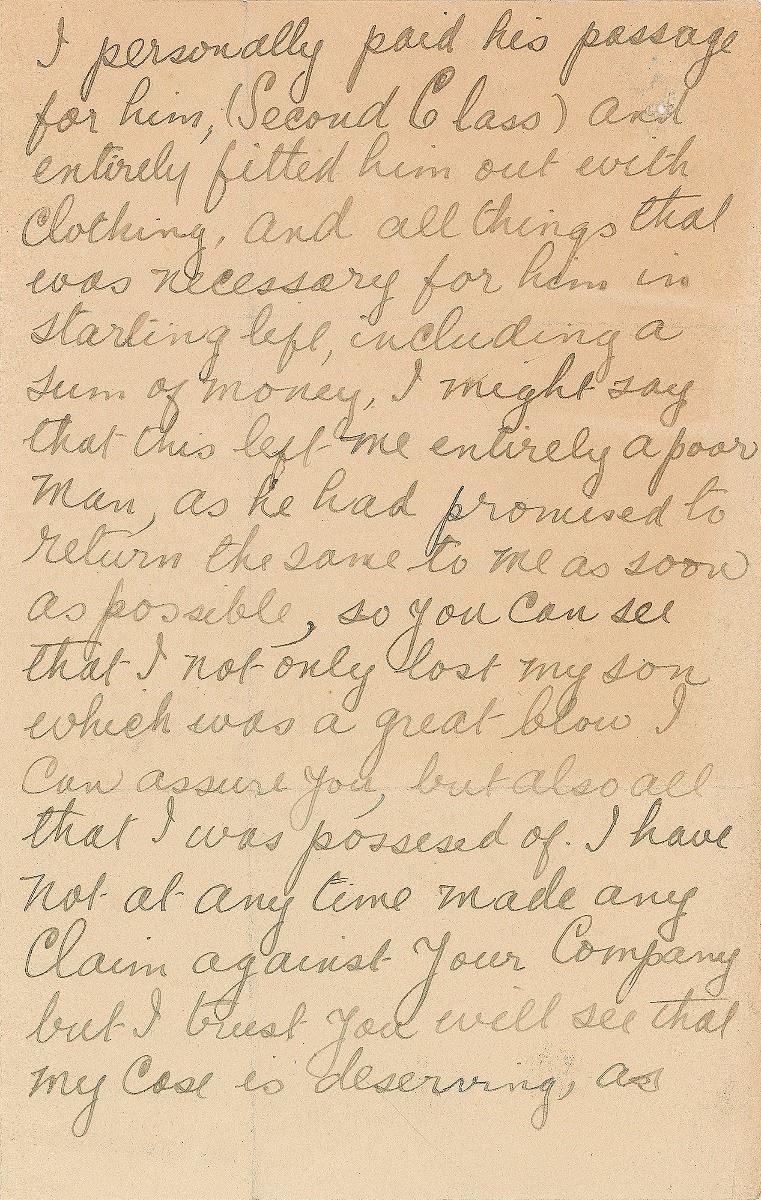 I personally paid his passage
for him, (Second Class) and
entirely fitted him out with
Clothing, and all things that
was necessary for him in
starting life, including a
sum of money, I might say
that this left me entirely a poor
Man, as he had promised to
return the same to me as soon
as possible, so you can see
that I not only lost my son
which was a great blow I
Can assure you, but also all
that I was possesed of. I have
Not at any time made any
Claim against Your Company
but I trust you will see that
my Case is deserving, as